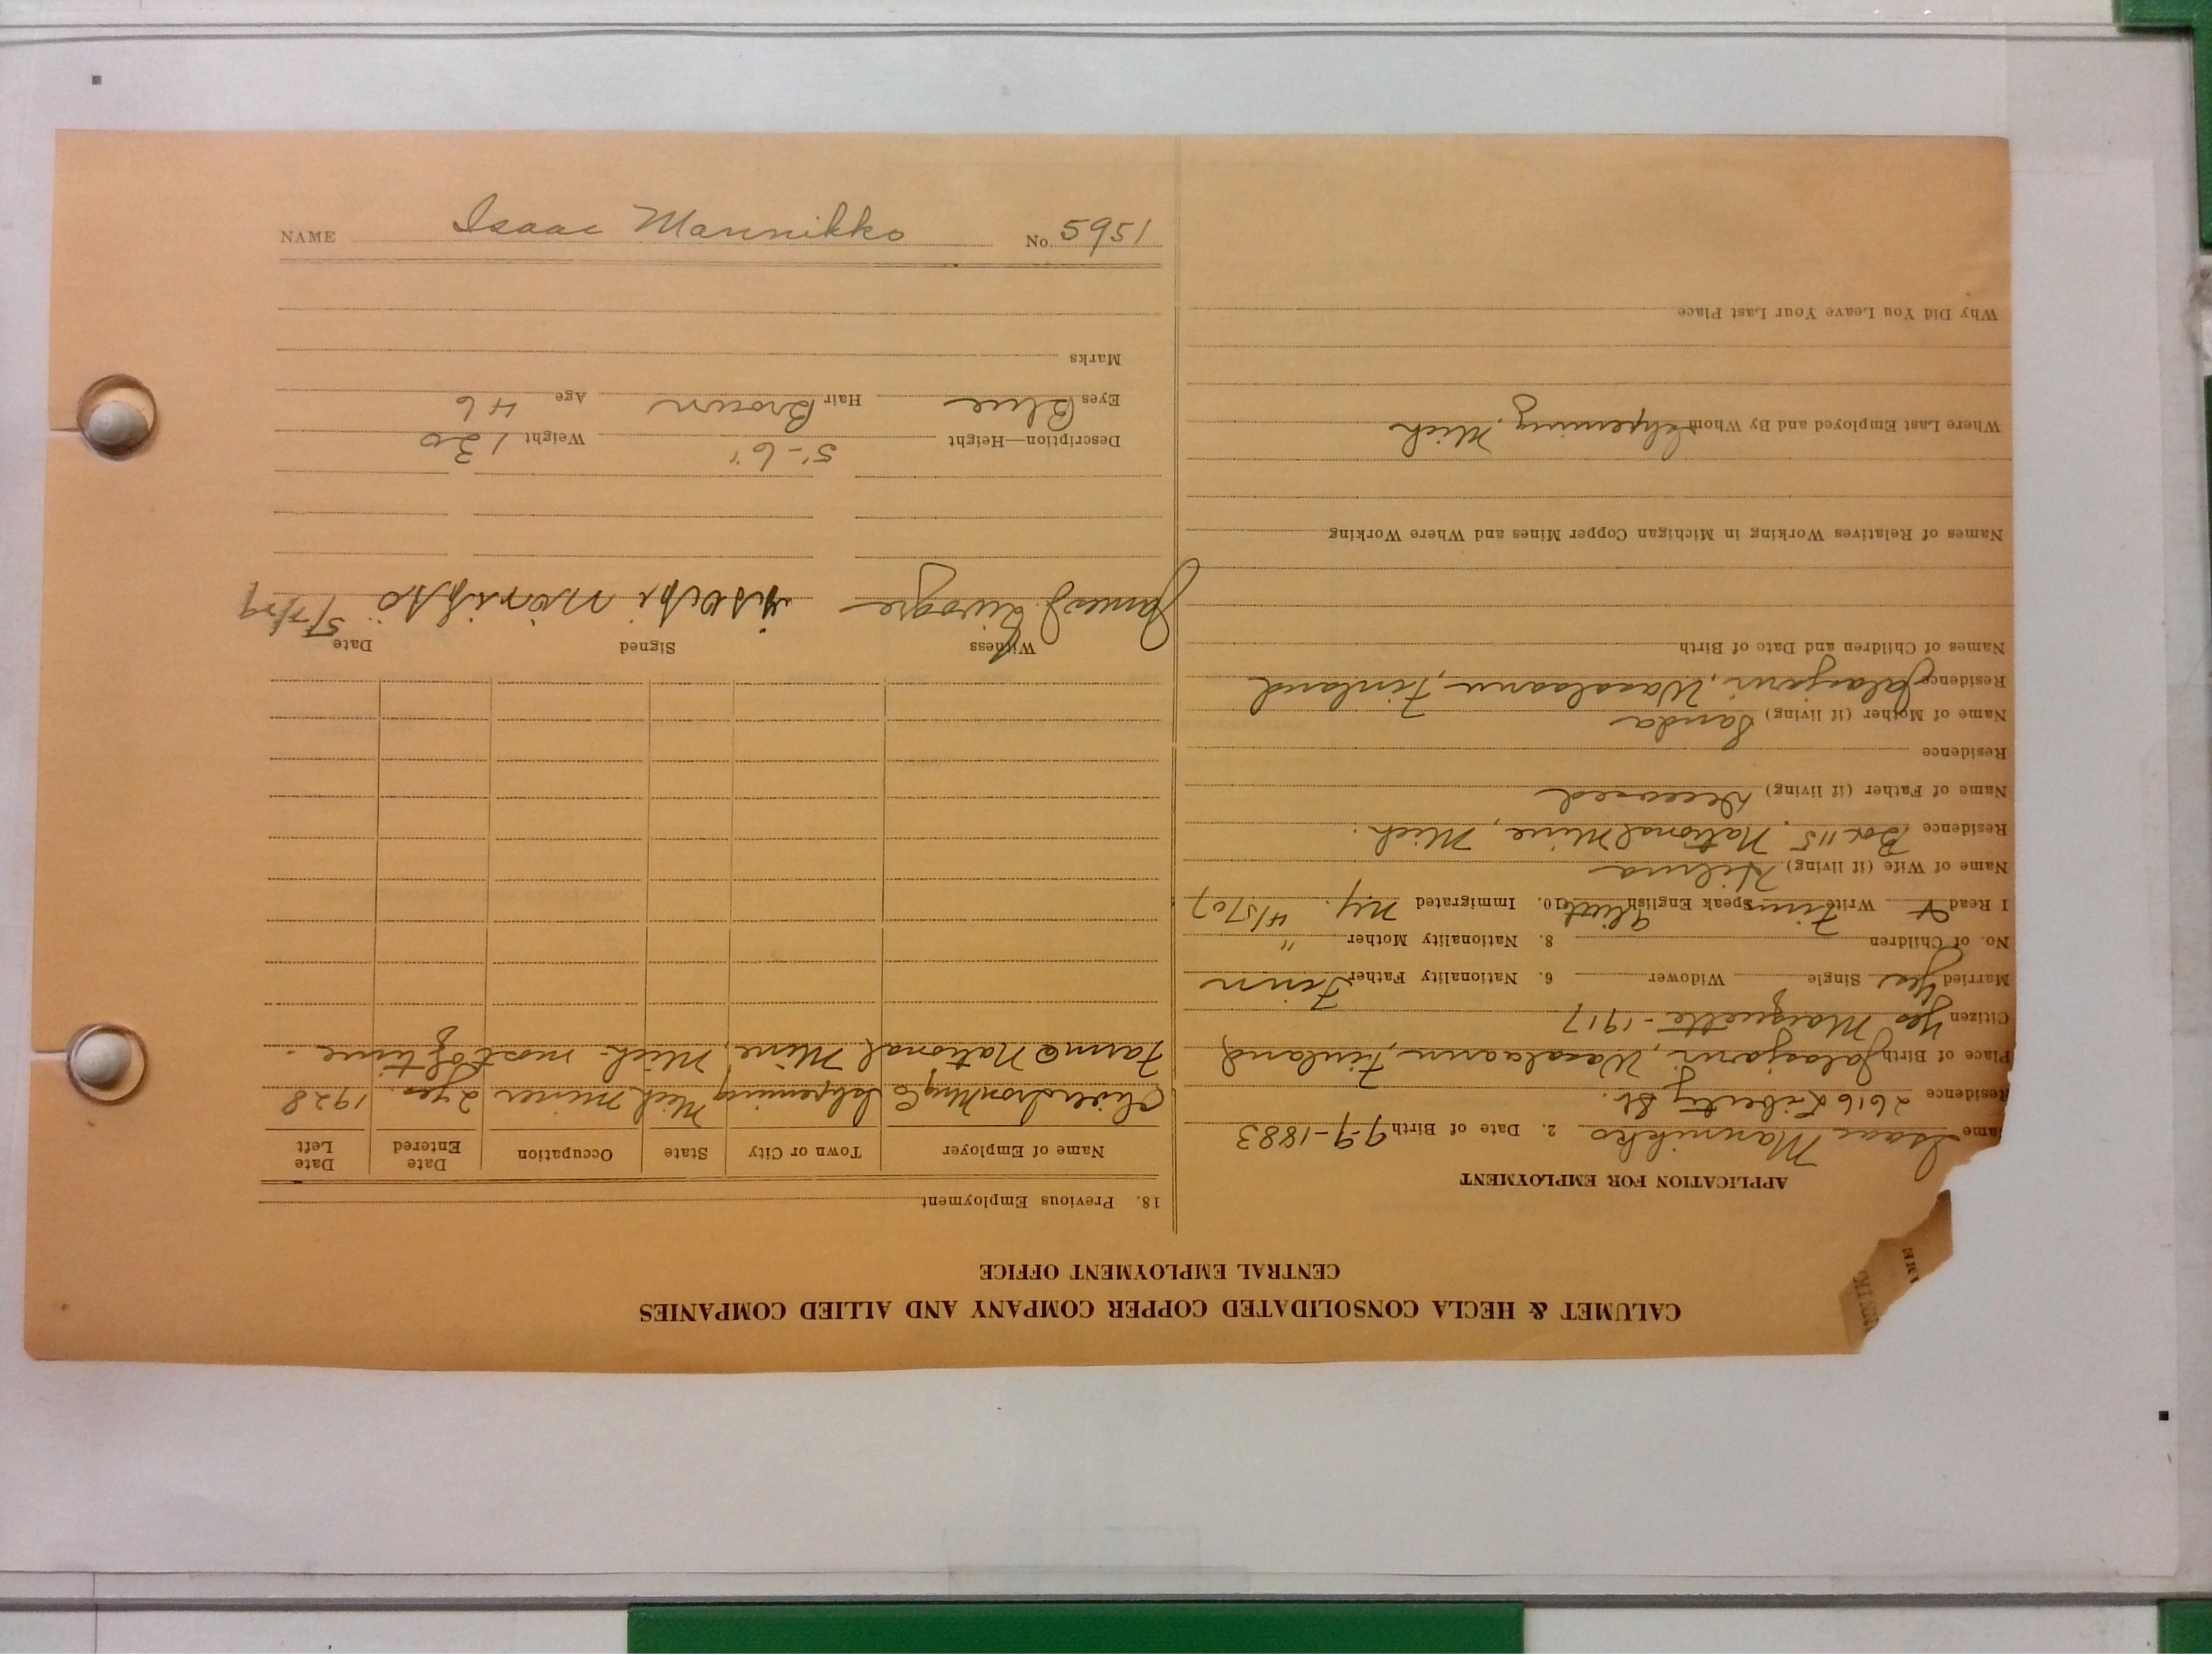 NAME Isaac Mannikko No. 5951
CALUMET & HECLA CONSOLIDATED COPPER COMPANY AND ALLIED COMPANIES
CENTRAL EMPLOYMENT OFFICE
APPLICATION FOR EMPLOYMENT
ame Isaac Mannikko 2. Date of Birth 9-9-1883
Residence 2616 Liberty St.
Place of Birth Jalasjarvi, Waasalaani, Finland
Citizen Yes Marquette - 1917
Married Yes Single Widower 6. Nationality Father Finn
No. of Children 8. Nationality Mother "
I Read & Write Finn Speak English 10. Immigrated N.Y. 4/5/07
Name of Wife (if living) Hilma
Residence Box 115, National Mine, Mich.
Name of Father (if living) Deceased
Residence
Name of Mother (if living) Sanda
Residence Jalasjarvi, Waasalaani, Finland
Names of Children and Date of Birth
Names of Relatives Working in Michigan Copper Mines and Where Working
Where Last Employed and By Whom Ishpeming, Mich
Why Did You Leave Your Last Place
18. Previous Employment
Name of Employer Town or City State Occupation Date Entered Date Left
Iron Mng Co Ishpeming Mich miner 2 yrs. 1928
Farm @ National Mine, Mich - most of time.
Witness Signed Date
James 5/7/29
Description—Height 5'-6" Weight 130
Eyes Blue Hair Brown Age 46
Marks